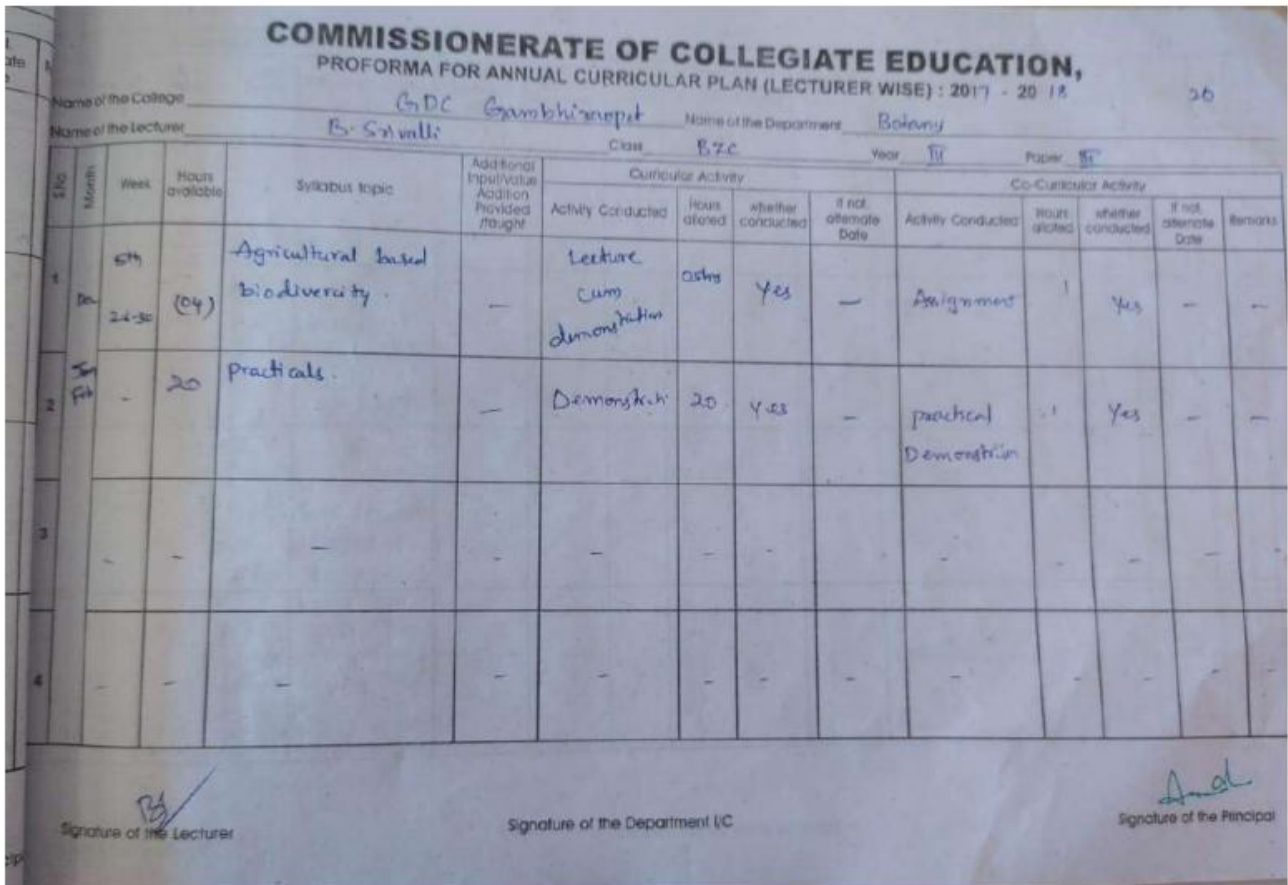 COMMISSIONERATE OF COLLEGIATE EDUCATION,
PROFORMA FOR ANNUAL CURRICULAR PLAN (LECTURER WISE) : 2017 - 20 18
20
Name of the College GDC Gambhiraopet Name of the Department Botany
Name of the Lecturer B. Srivalli Class BZC Year III Paper
S.No Month Week Hours available Syllabus topic Additional Input/Value Addition Provided /taught Curricular Activity Co-Curricular Activity
Activity Conducted Hours alloted whether conducted If not, alternate Date Activity Conducted Hours alloted whether conducted If not, alternate Date Remarks
1 5th 26-30 (04) Agricultural based biodivercity. — Lecture cum demonstration Yes — Assignment 1 Yes — —
2 Jan Feb - 20 practicals. — Demonstrati 20 Yes — practical Demonstrtion 1 Yes — —
3 - - — — - - - - - - - -
4 - - — - - - - - - - - - -
Signature of the Lecturer Signature of the Department I/C Signature of the Principal